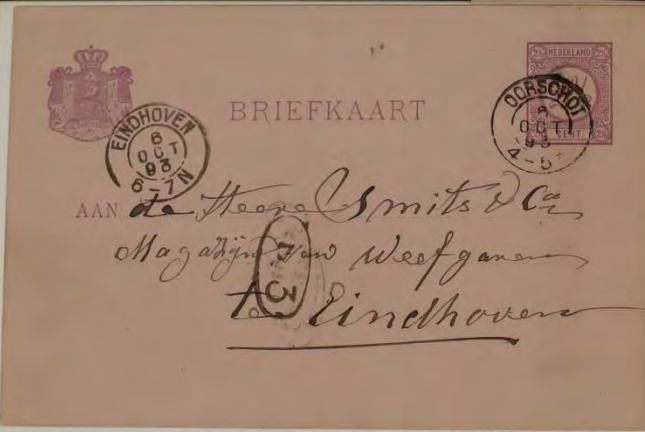 NEDERLAND
CENT.
OORSCHOT
6
OCT
93
4-5
BRIEFKAART
EINDHOVEN
6
OCT
93
6-7N
AAN de Heeren Smits & Co
Magazijn van Weefgarens
3
te Eindhoven